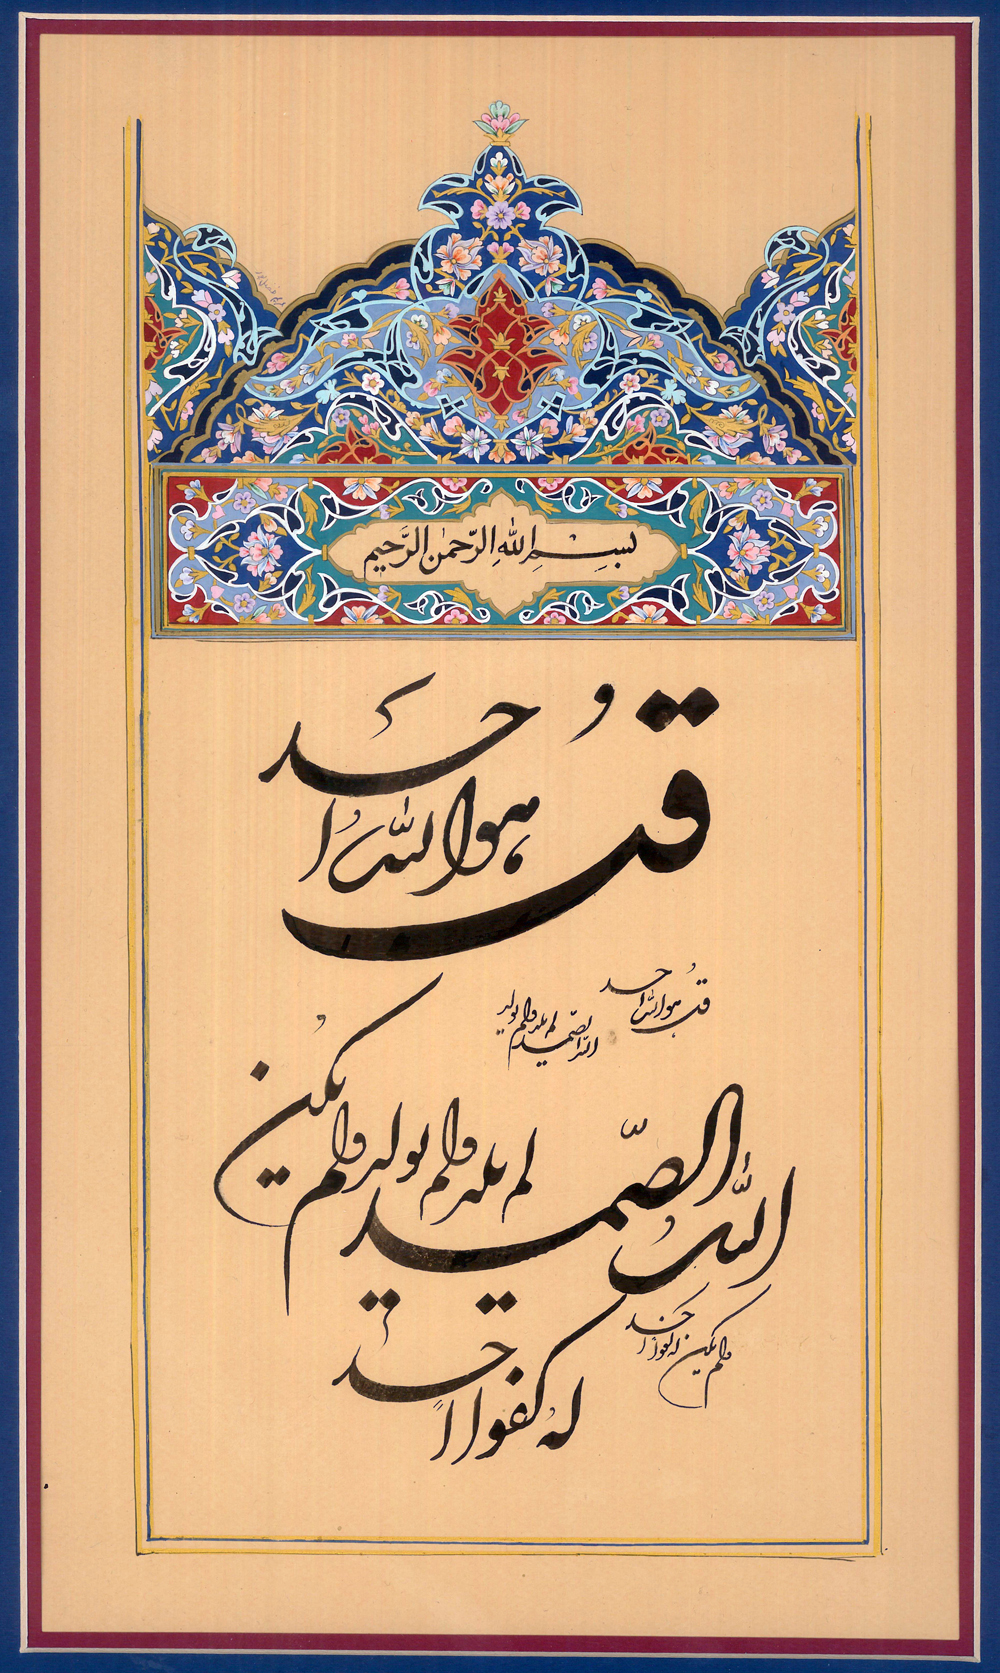 بِسْمِ اللهِ الرَّحمٰنِ الرَّحیمِ
قل هو الله احد
قل هو الله احد
الله الصّمد لم یلد ولم یولد
الله الصّمد لم یلد ولم یولد ولم یکن
له کفوا احد
ولم یکن له کفوا احد